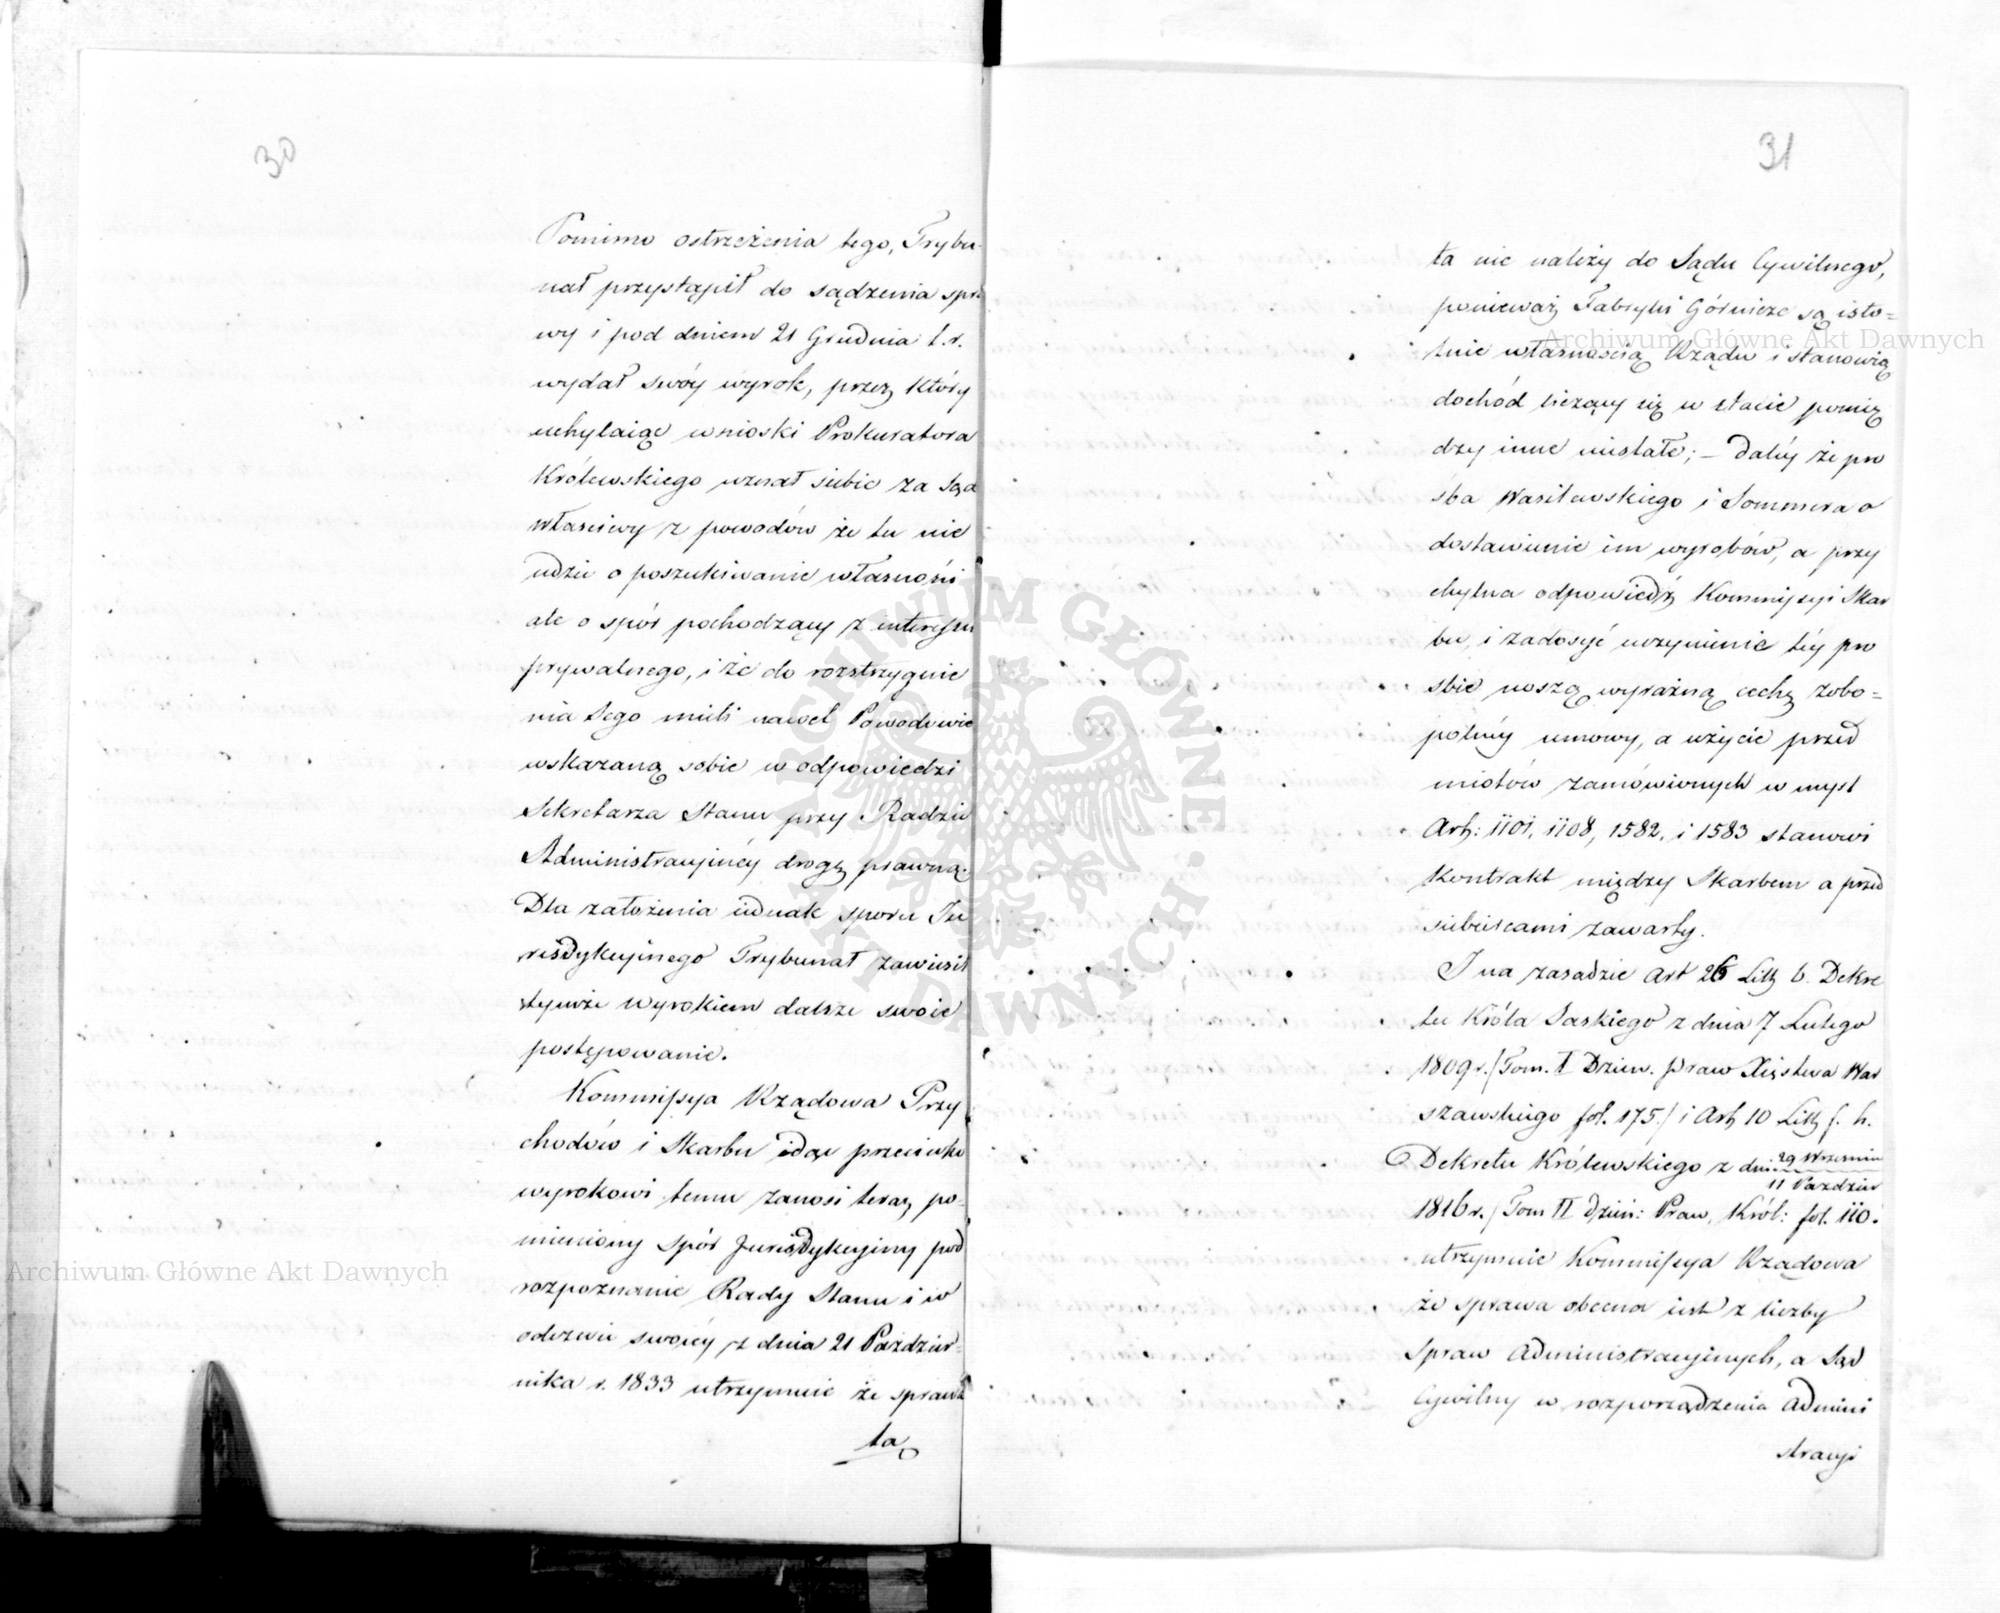 30
Pomimo ostrzeżenia tego, Trybu-
nał przystąpił do sądzenia spra
wy i pod dniem 21 Grudnia t. r.
wydał swóy wyrok, przez który
uchylaiąc wnioski Prokuratora
Królewskiego uznał siebie za Sąd
właściwy z powodów że tu nie
idzie o poszukiwanie własności
ale o spór pochodzący z interessu
prywatnego, i że do rozstrzygnie
nia tego mieli nawet Powodowie
wskazaną sobie w odpowiedzi
Sekretarza Stanu przy Radzie
Administracyinéy drogę prawną.
Dla założenia iednak sporu Ju
risdykcyinego Trybunał zawiesił
tymże Wyrokiem dalsze swoie
postępowanie.
Kommissya Rządowa Przy
chodów i Skarbu idąc przeciwko
wyrokowi temu zanosi teraz po-
mieniony Spór Jurisdykcyiny pod
rozpoznanie Rady Stanu i w
odezwie swoiéy z dnia 21 Paździer-
nika r. 1833 utrzymuie że sprawa
ta
31
ta nie należy do Sądu Cywilnego,
ponieważ Fabryki Górnicze są isto=
tnie własnością Rządu i stanowią
dochód liczący się w etacie pomię
dzy inne niestałe; – Daléy że pro
śba Wasilewskiego i Sommera o
dostawienie im wyrobów, a przy
chylna odpowiedź Kommissyi Skar
bu, i zadosyć uczynienie téy pro
śbie noszą wyraźną cechę zobo=
pólnéy umowy, a użycie przed
miotów zamówionych w myśl
Art: 1101, 1108, 1582, i 1583 stanowi
Kontrakt między Skarbem a przed
siebiercami zawarty.
I na zasadzie Art 26 Litt b. Dekre
tu Króla Saskiego z dnia 7 Lutego
1809 r. /Tom. I Dzien. Praw Xięstwa War
szawskiego fol. 175./ i Art 10 Litt f. h.
Dekretu Królewskiego z dnia 29 Września
11 Paździer
1816 r. /Tom II Dzien: Praw, Król: fol. 110.
utrzymuie Kommissya Rządowa
że sprawa obecna iest z liczby
Spraw Administracyinych, a Sąd
Cywilny w rozporządzenia Admini
stracyi
Archiwum Główne Akt Dawnych
Archiwum Główne Akt Dawnych
ARCHIWUM GŁÓWNE AKT DAWNYCH